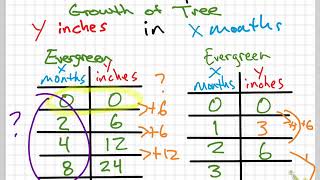 Growth of Tree
Y inches in X months
Evergreen
X months Y inches
?
?
0 0
+6
2 6
+6
4 12
+12
8 24
Evergreen
X months Y inches
0 0
1 3
2 6
3